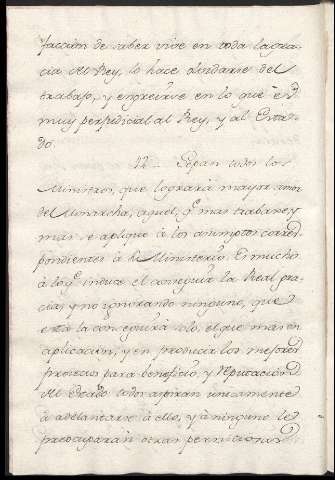 faccion de saber vive en toda la gra=
cia del Rey, lo hace olvidarse del
trabajo, y engreirse en lo que es
muy perjudicial al Rey, y al Esta=
do.
12. Sepan todos los
Ministros, que lograrà mayor amor
del Monarcha, aquel, q.e mas trabaxe, y
mas se aplique à los asumptos corres=
pondientes à su Ministerio. Es mucho
à lo q.e induce el conseguir la Real gra=
cia, y no ignorando ninguno, que
esta la conseguirà solo, el que mas en
aplicacion, y en producir los mejores
proyectos para beneficio, y reputacion
del Estado todos aspiran unicamente
à adelantarse à ello, y à ninguno le
preocuparàn otras pasiones